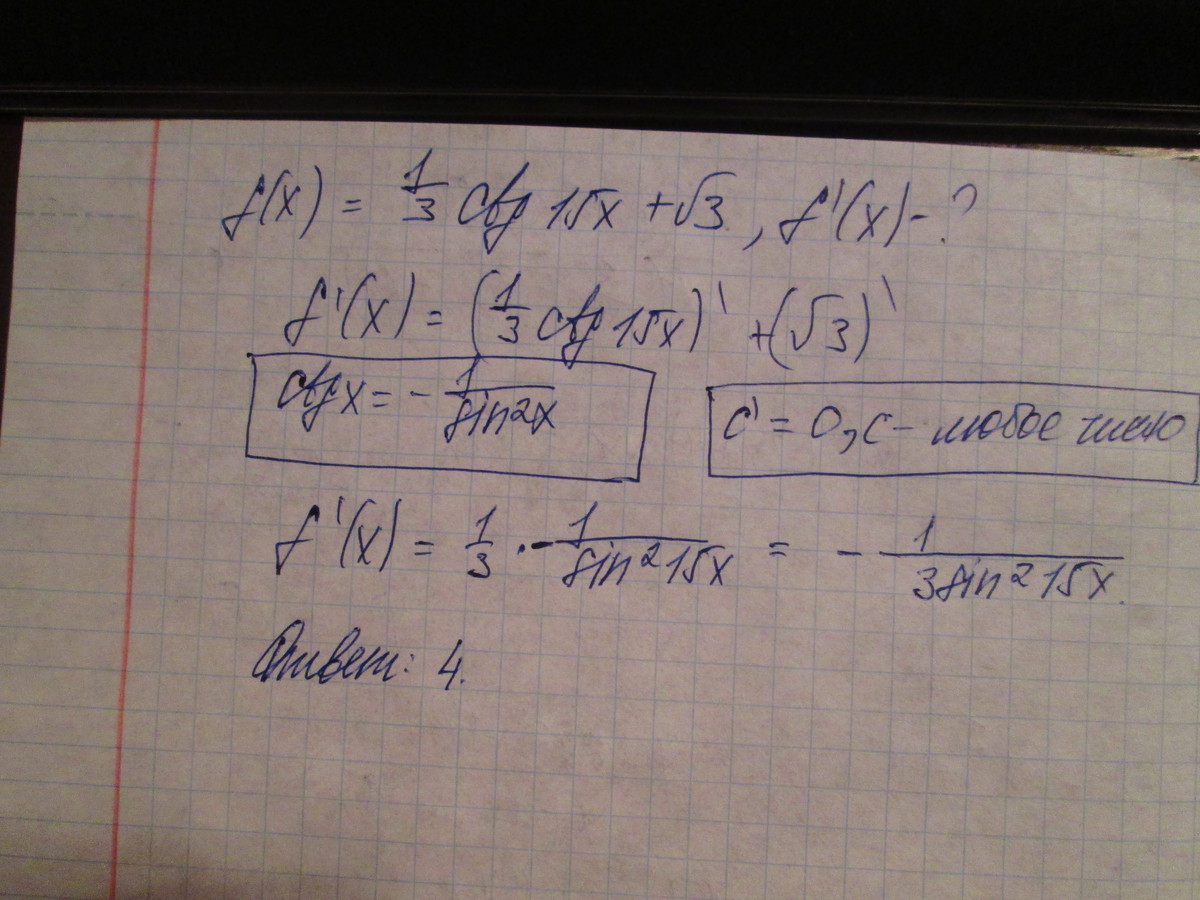 f(x) = 1/3 ctg 15x + √3, f'(x) - ?
f'(x) = (1/3 ctg 15x)' + (√3)'
ctg x = - 1/sin²x
c' = 0, c - любое число
f'(x) = 1/3 · - 1/sin²15x = - 1/3sin²15x.
Ответ: 4.